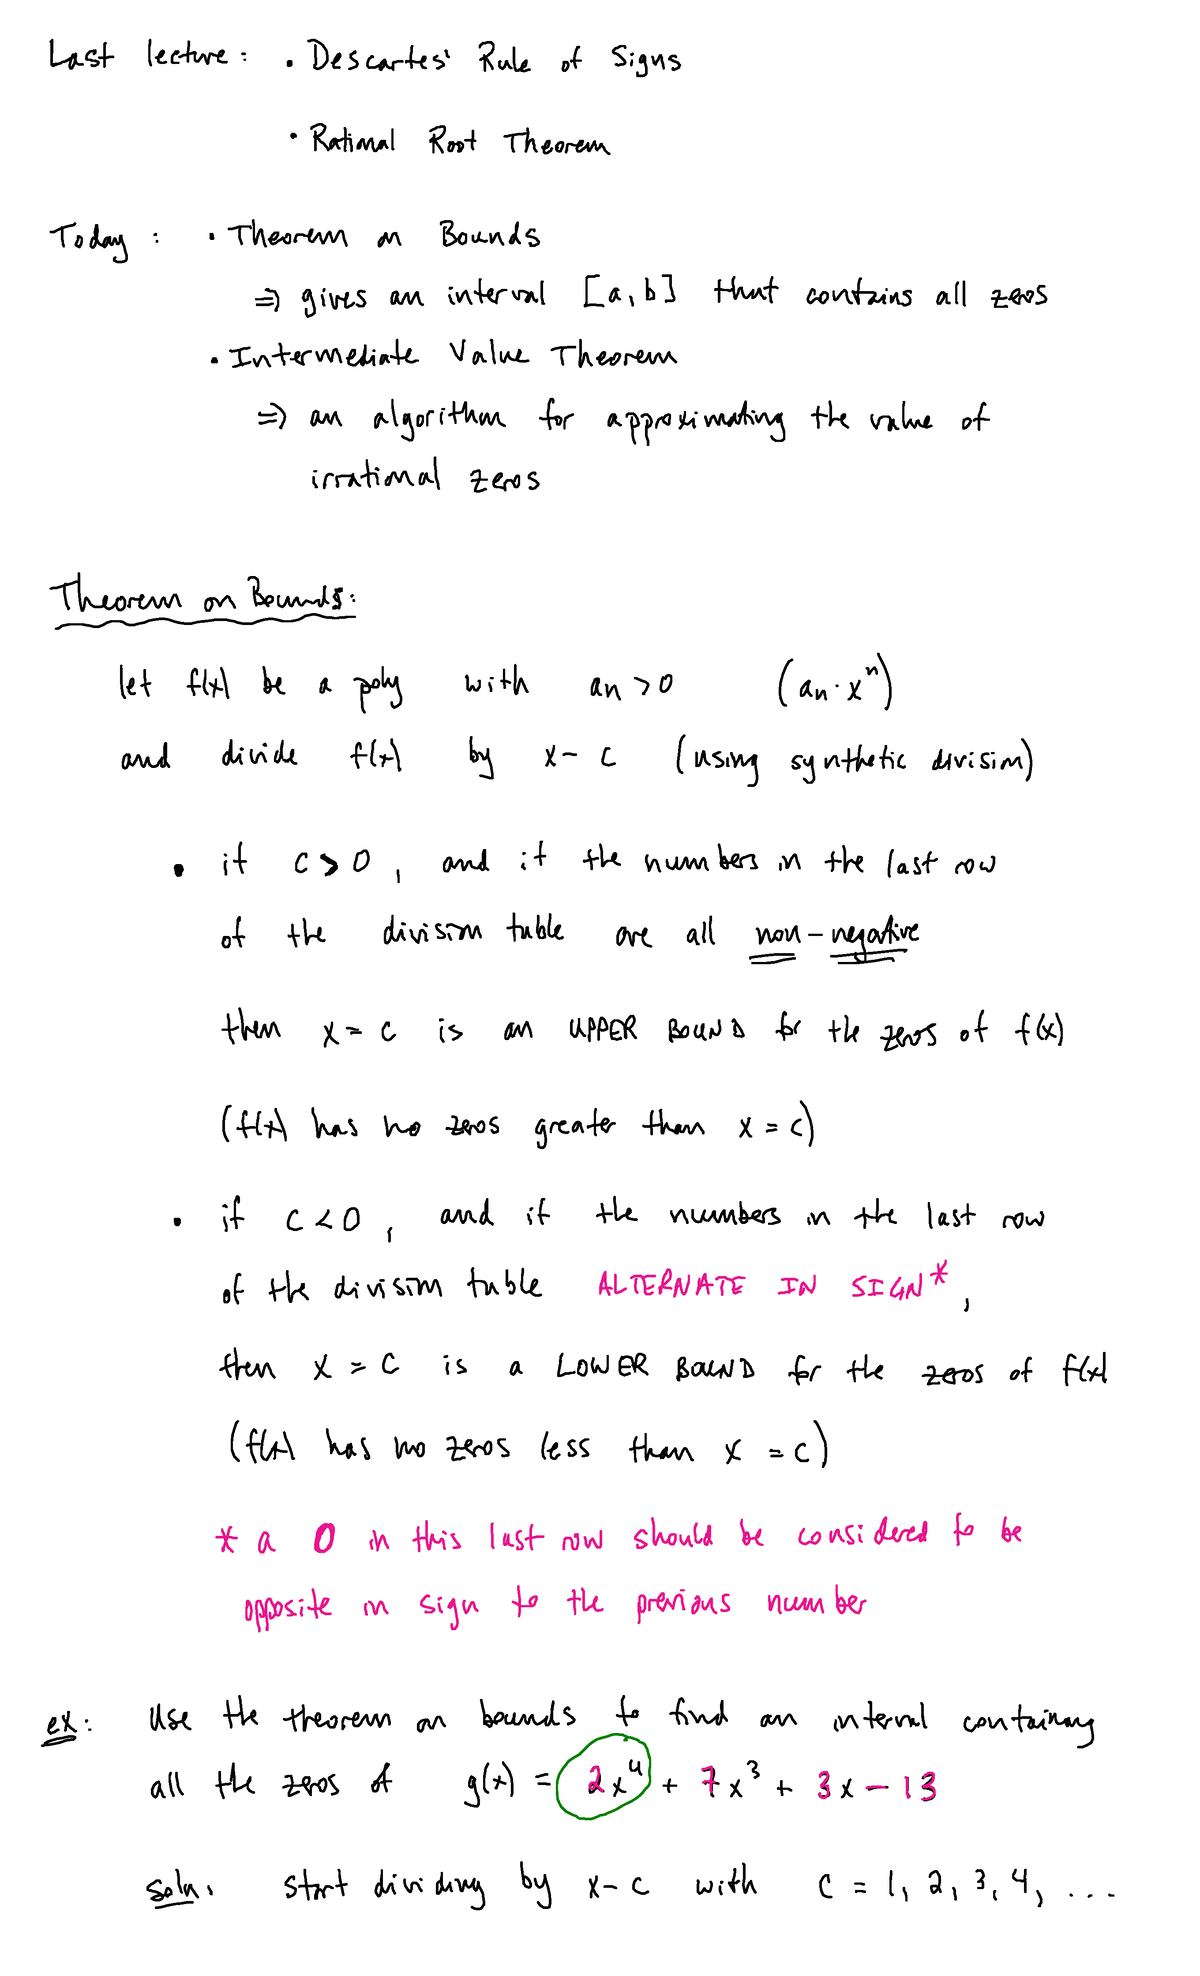 Last lecture: • Descartes' Rule of Signs
• Rational Root Theorem
Today: • Theorem on Bounds
⇒ gives an interval [a, b] that contains all zeros
• Intermediate Value Theorem
⇒ an algorithm for approximating the value of
irrational zeros
Theorem on Bounds:
let f(x) be a poly with an > 0 (an·xⁿ)
and divide f(x) by x - c (using synthetic division)
• if c > 0, and if the numbers in the last row
of the division table are all non-negative
then x = c is an UPPER BOUND for the zeros of f(x)
(f(x) has no zeros greater than x = c)
• if c < 0, and if the numbers in the last row
of the division table ALTERNATE IN SIGN*,
then x = c is a LOWER BOUND for the zeros of f(x)
(f(x) has no zeros less than x = c)
* a 0 in this last row should be considered to be
opposite in sign to the previous number
ex: Use the theorem on bounds to find an interval containing
all the zeros of g(x) = 2x⁴ + 7x³ + 3x - 13
soln. start dividing by x - c with c = 1, 2, 3, 4, ...